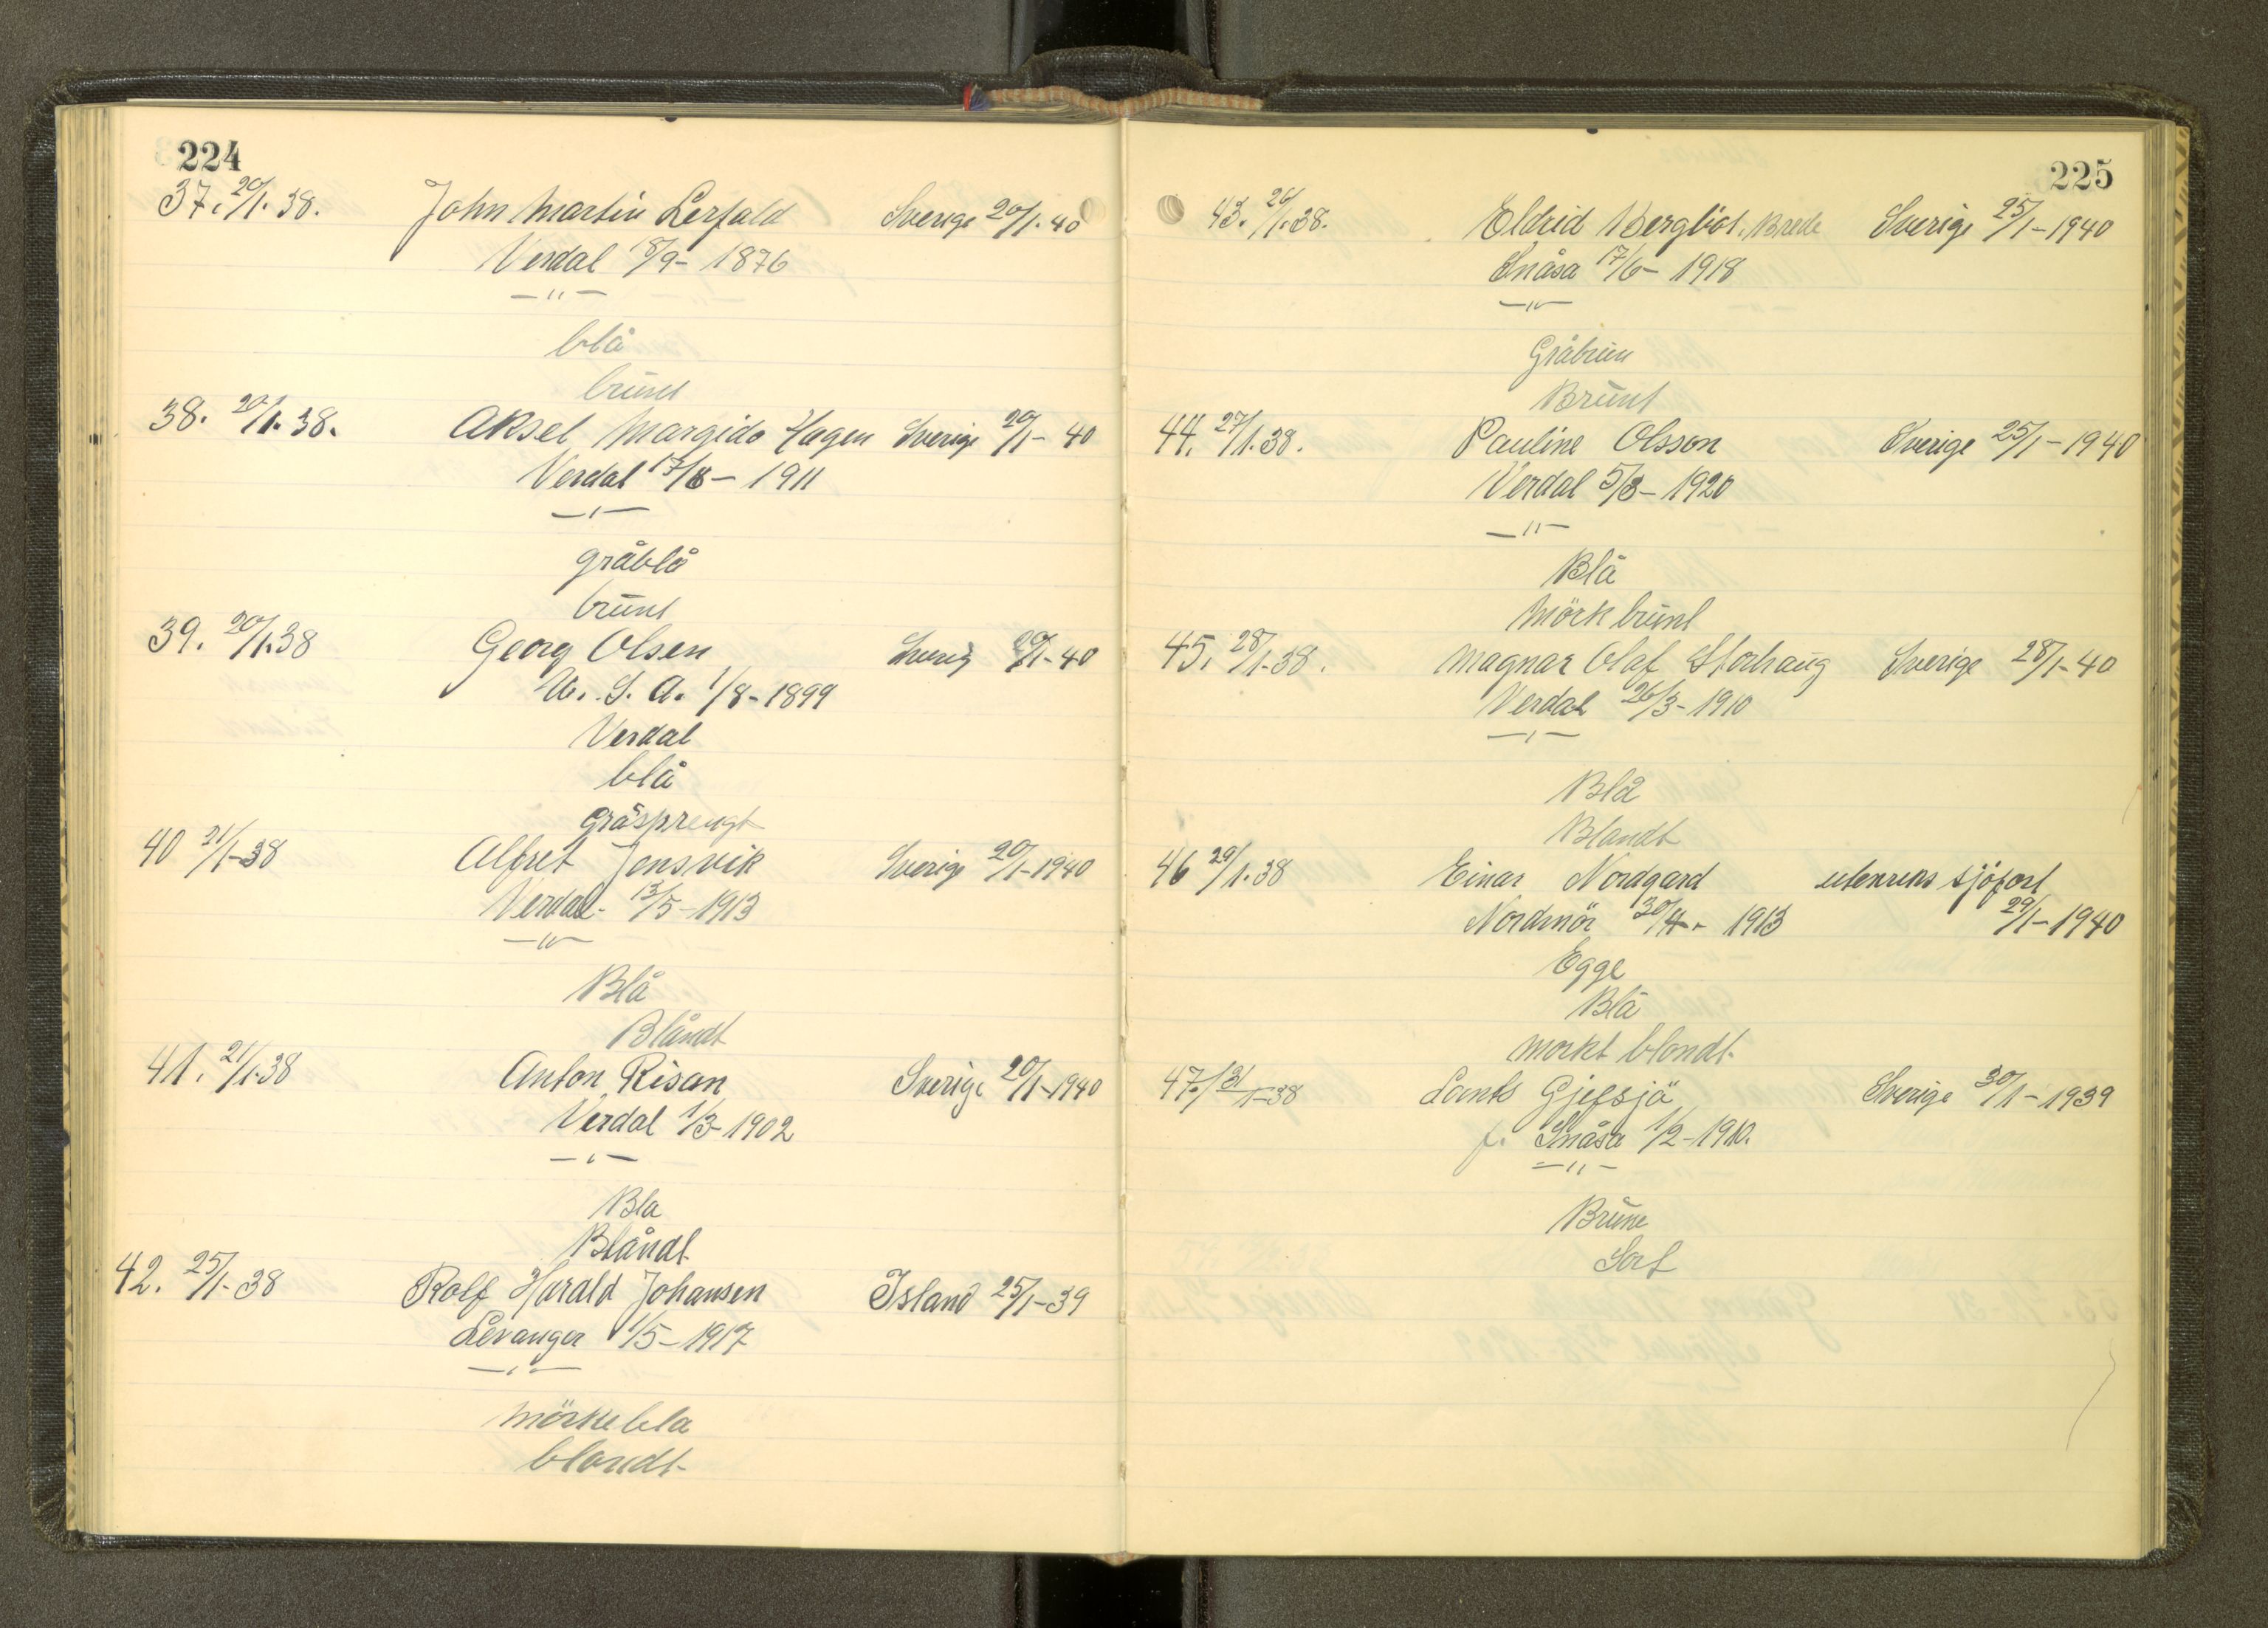 224
37. 20/1. 38. John Martin Lerfald Sverige 20/1. 40
Verdal 8/9- 1876
—"—
blå
brunt
38. 20/1. 38. Aksel Margido Hagen Sverige 20/1- 40
Verdal 17/8- 1911
—"—
gråblå
brunt
39. 20/1.38 Georg Olsen Sverig 20/1-40
U. S. A. 1/8-1899
Verdal
blå
Gråsprengt
40 21/1-38 Alfret Jensvik Sverige 20/1-1940
Verdal- 13/5-1913
—"—
Blå
Blåndt
41. 21/1-38 Anton Risan Sverige 20/1-1940
Verdal 1/3-1902
—"—
Bla
Blåndt
42. 25/1-38 Rolf Harald Johansen Island 25/1-39
Levanger 1/5-1917
—"—
mörkebla
blondt
225
43. 26/1.38. Eldrid Bergliot. Brede Sverige 25/1-1940
Snåsa 17/6- 1918
—"—
Gråbrun
Brunt
44. 27/1.38. Pauline Olsson Sverige 25/1-1940
Verdal 5/8-1920
—"—
Blå
Mörk brunt
45. 28/1-38. Magnar Olaf Storhaug Sverige 28/1-40
Verdal 26/3-1910
—"—
Blå
Blandt
46 29/1.38 Einar Nordgard utenriks sjöfart
Nordmör 30/4- 1913 29/1-1940
Egge
Blå
morkt blondt.
47. 31/1-38 Gjefsjö Sverige 30/1-1939
f. Snåsa 1/2-1910.
—"—
Brune
Sort